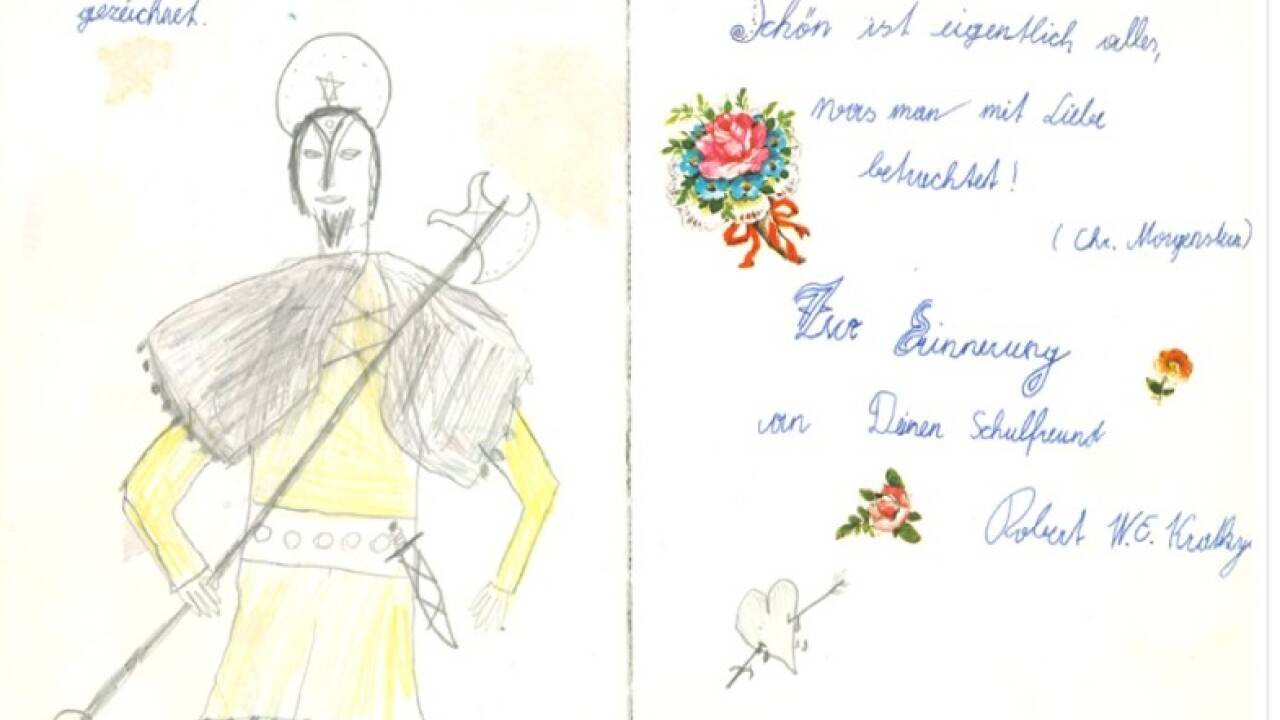 gezeichnet.
Schön ist eigentlich alles,
was man mit Liebe
betrachtet!
(Chr. Morgenstern)
Zur Erinnerung
an Deinen Schulfreund
Robert W.E. Kratky